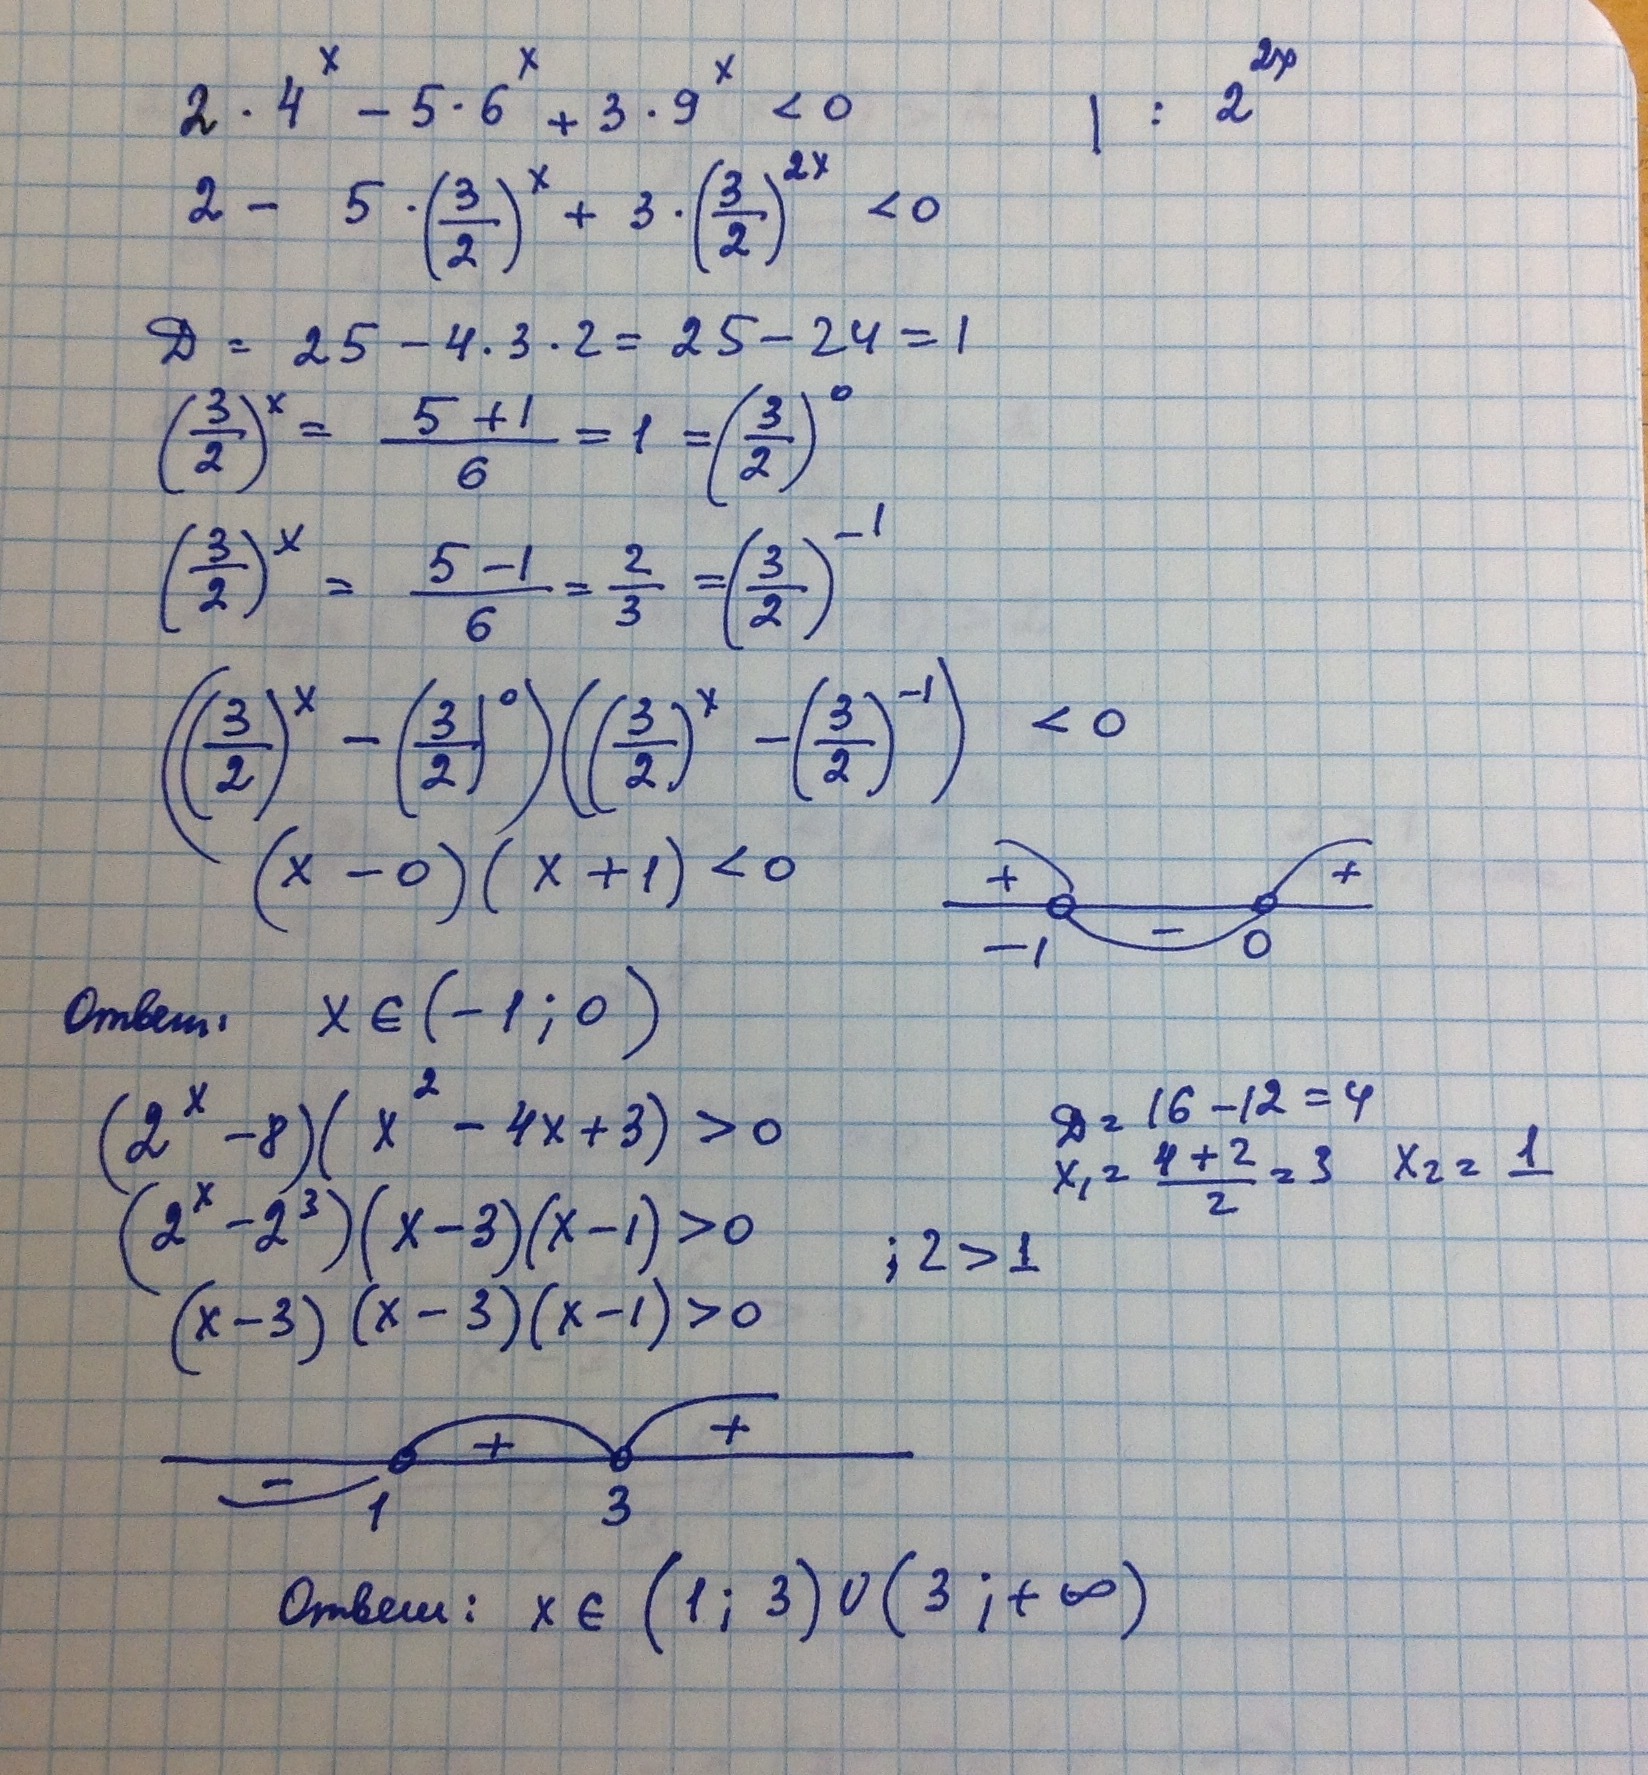 2 · 4^x − 5 · 6^x + 3 · 9^x < 0 | : 2^2x
2 − 5 · (3/2)^x + 3 · (3/2)^2x < 0
D = 25 − 4 · 3 · 2 = 25 − 24 = 1
(3/2)^x = (5 + 1)/6 = 1 = (3/2)^0
(3/2)^x = (5 − 1)/6 = 2/3 = (3/2)^−1
((3/2)^x − (3/2)^0)((3/2)^x − (3/2)^−1) < 0
(x − 0)(x + 1) < 0
+ − +
−1 0
Ответ: x ∈ (−1; 0)
(2^x − 8)(x^2 − 4x + 3) > 0
D = 16 − 12 = 4
x₁ = (4 + 2)/2 = 3 x₂ = 1
(2^x − 2^3)(x − 3)(x − 1) > 0 ; 2 > 1
(x − 3)(x − 3)(x − 1) > 0
− + +
1 3
Ответ: x ∈ (1; 3) ∪ (3; +∞)